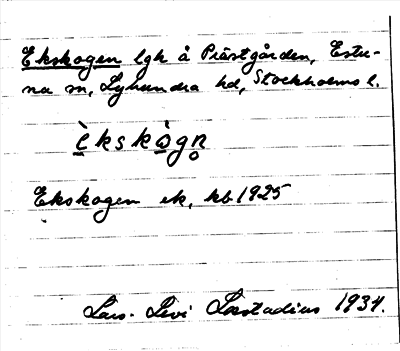 Ekskogen lgh å Prästgården, Estu-
na sn, Lyhundra hd, Stockholms l.
è̠kskò̠gn̥
Ekskogen ek, kb 1925
Lars-Levi Læstadius 1934.